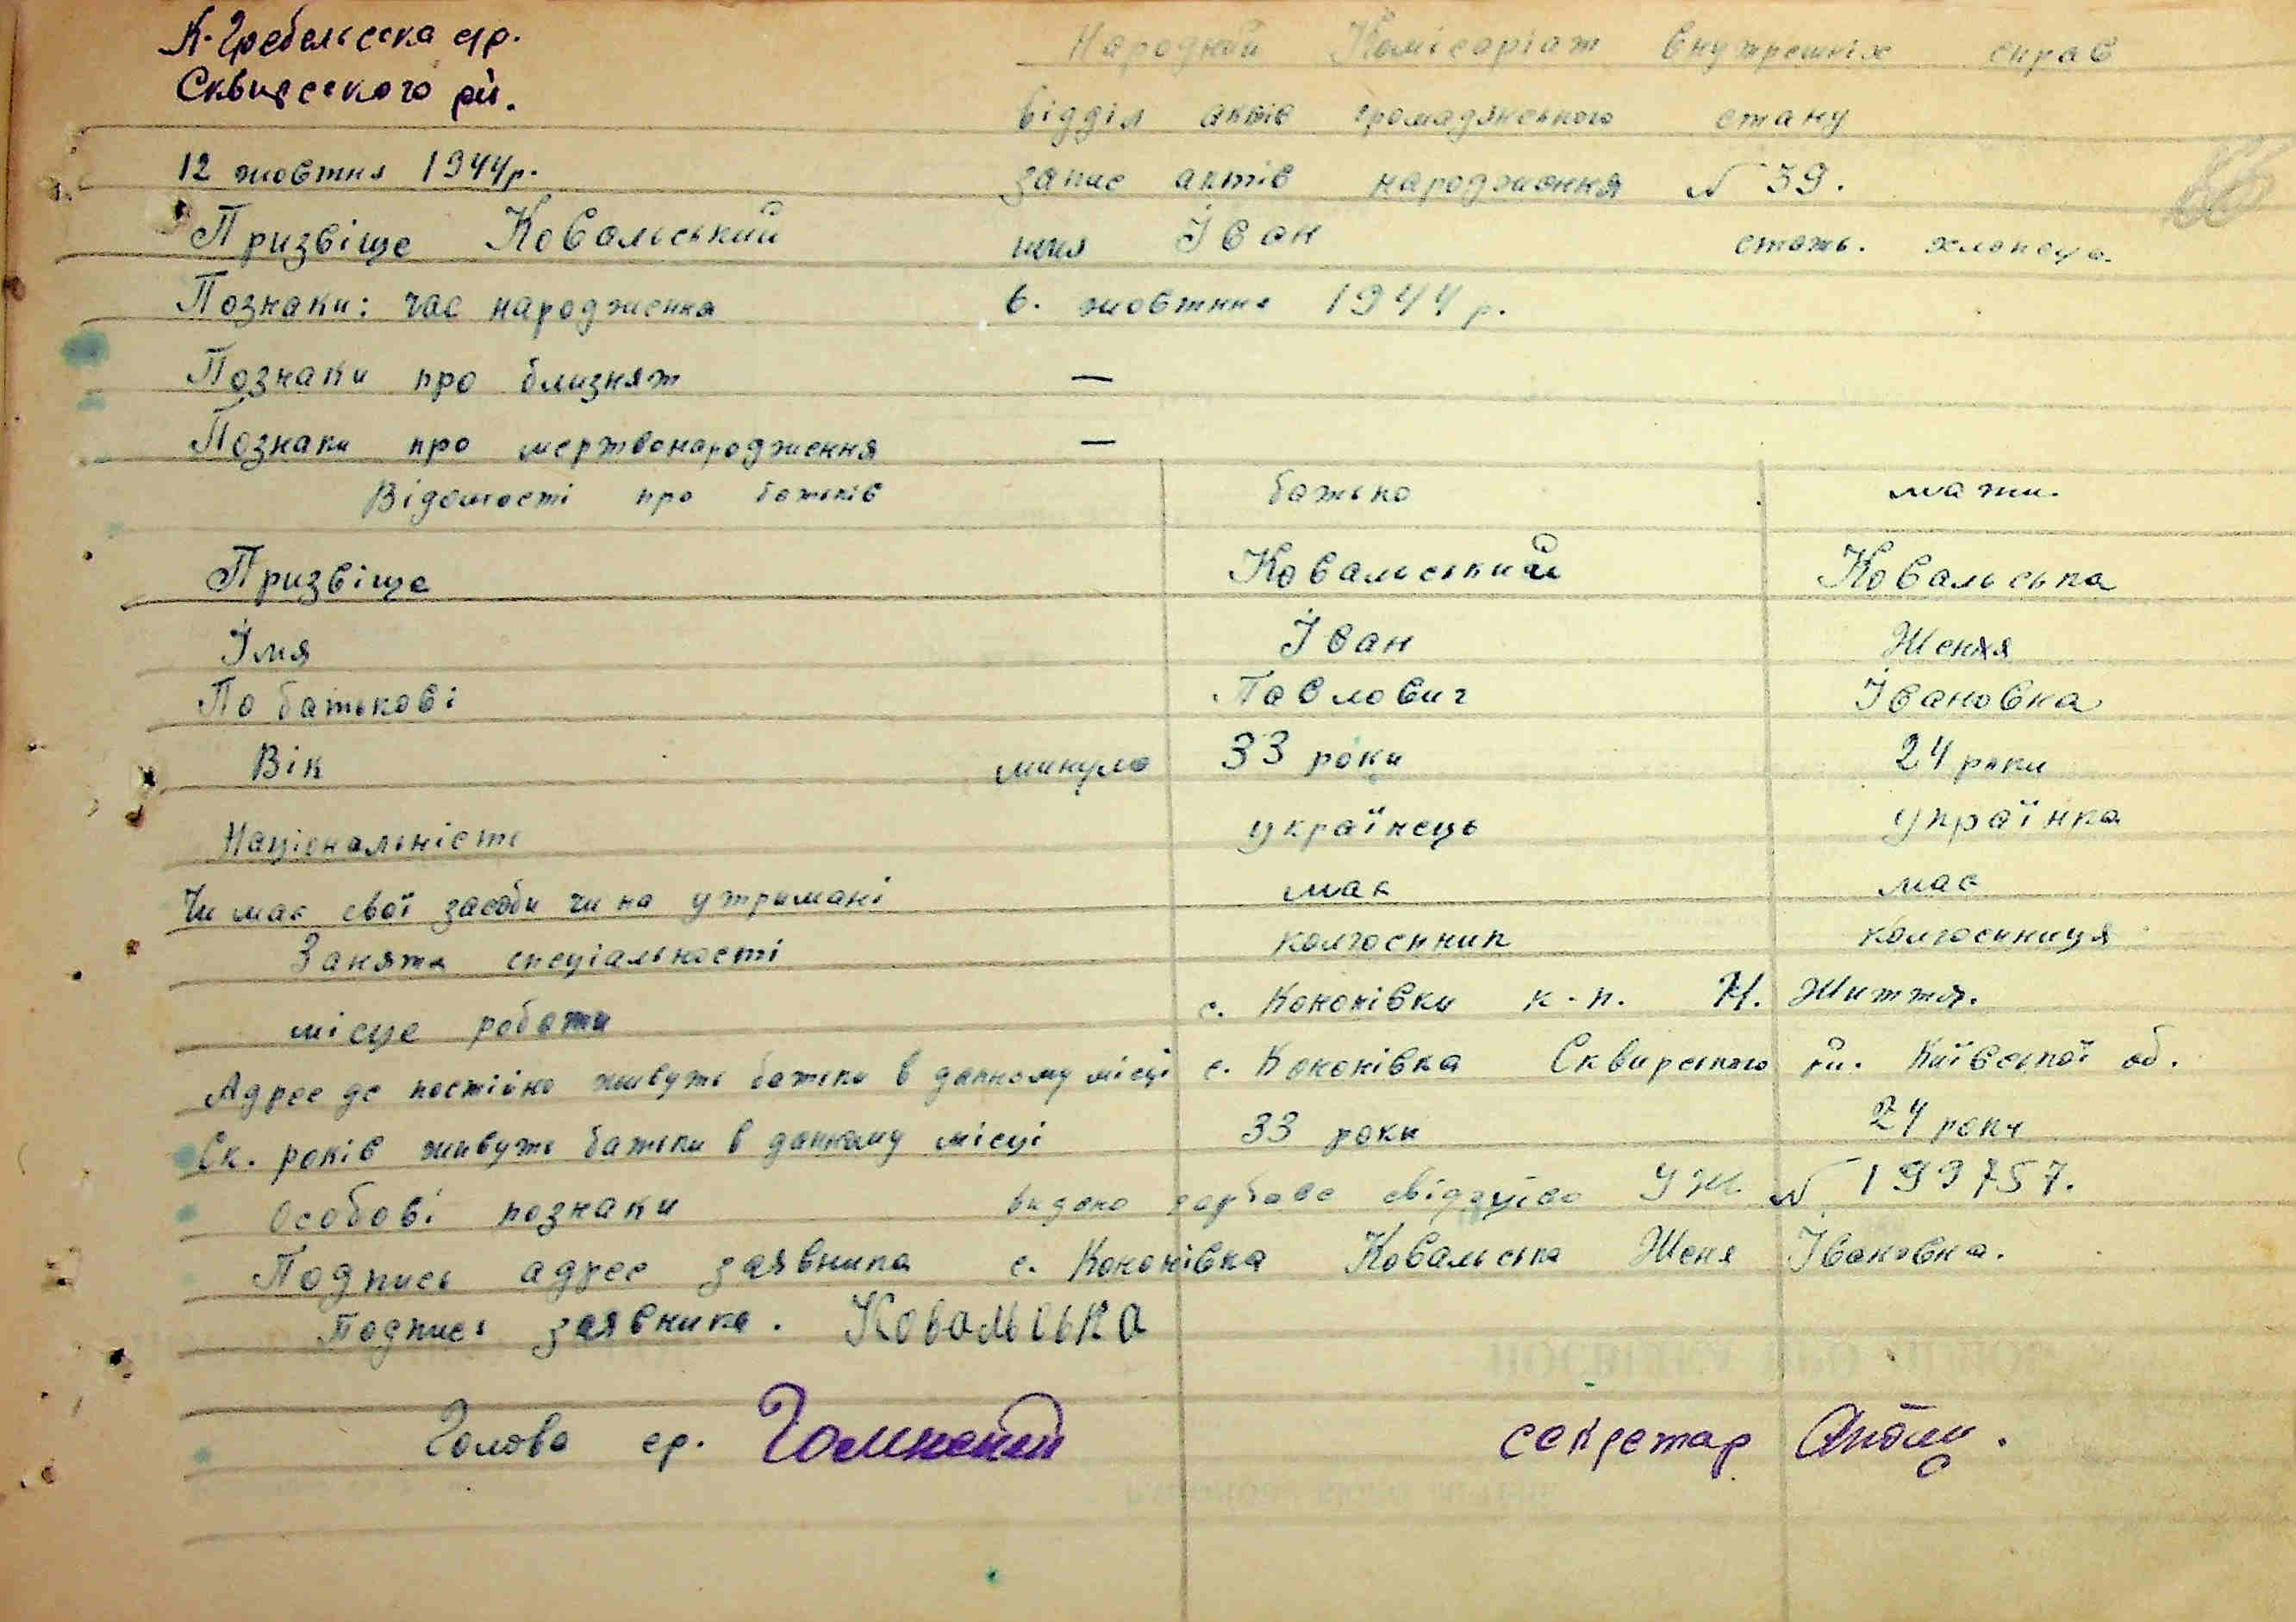 К-Гребельська ср.
Сквирського рй.
Народний Комісаріат внутрешніх справ
відділ актів громадянського стану
12 жовтня 1944р.
запис актів народження № 39.
Призвіще Ковальський имя Іван стать. хлопець.
Познаки: час народження 6. жовтня 1944 р.
Познаки про близнят —
Познаки про мертвонародження —
Відомості про батьків батько мати.
Призвіще Ковальський Ковальська
Імя Іван Женя
По батькові Павлович Івановна
Вік минуло 33 роки 24 роки
Національність українець українка
Чи має свої засоби чи на утримані має має
Заняття спеціальності колгоспник колгоспниця
місце роботи с. Кононівки к-п. Н. Життя.
Адрес де постійно живуть батьки в данному місці с. Кононівка Сквирського рй. Київської об.
Ск. років живуть батьки в данному місці 33 роки 24 роки
Особові познаки видано гербове свідоцтво УЖ № 199757.
Подпись адрес заявника с. Кононівка Ковальська Женя Івановна.
Подпись заявника. Ковальська
Голова ср. секретар